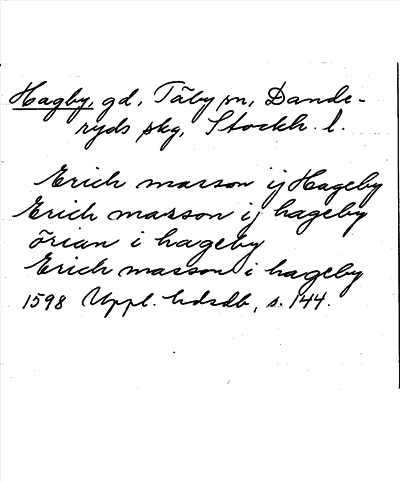 Hagby, gd, Täby sn, Dande-
ryds skg, Stockh. l.
Erich marson ij Hageby
Erich marson ij hageby
örian i hageby
Erich masson i hageby
1598 Uppl. hdsdb, s. 144.